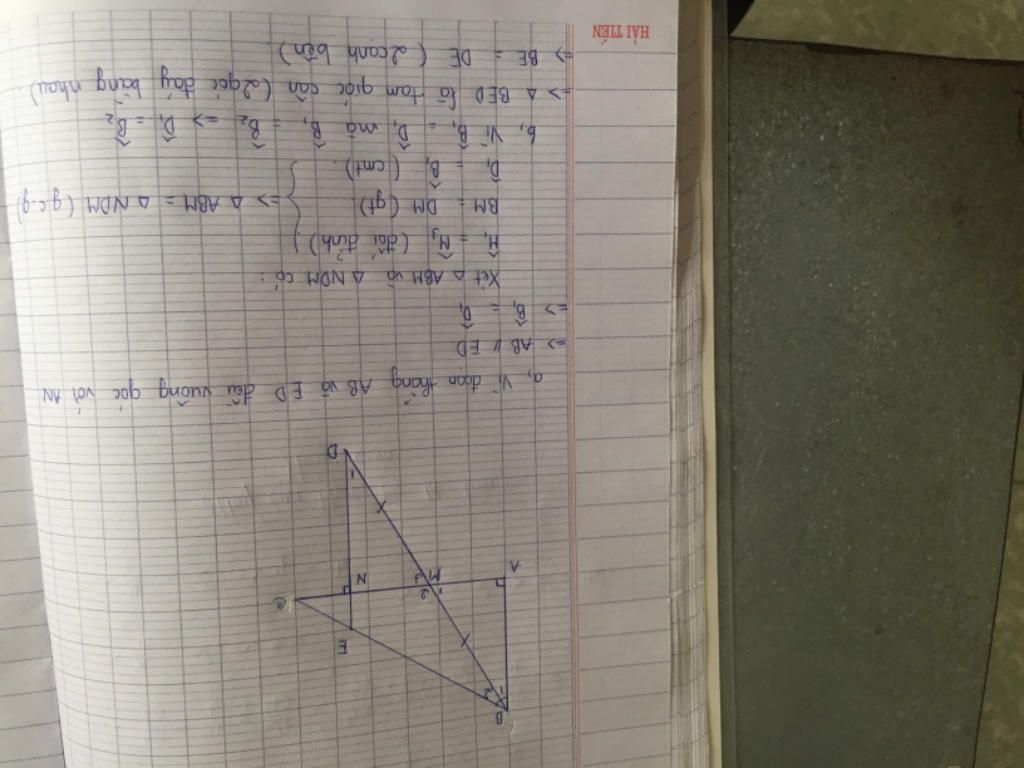 HẢI TIẾN
B
1
2
E
C
A
M
1
2
3
N
1
D
a, Vì đoạn thẳng AB và ED đều vuông góc với AN
=> AB // ED
=> B̂₁ = D̂₁
Xét △ ABM và △ NDM có:
M̂₁ = M̂₃ (đối đỉnh)
BM = DM (gt)
D̂₁ = B̂₁ (cmt)
} => △ ABM = △ NDM (g.c.g)
b, Vì B̂₁ = D̂₁ mà B̂₁ = B̂₂ => D̂₁ = B̂₂
=> △ BED là tam giác cân (2 góc đáy bằng nhau)
=> BE = DE (2 cạnh bên)